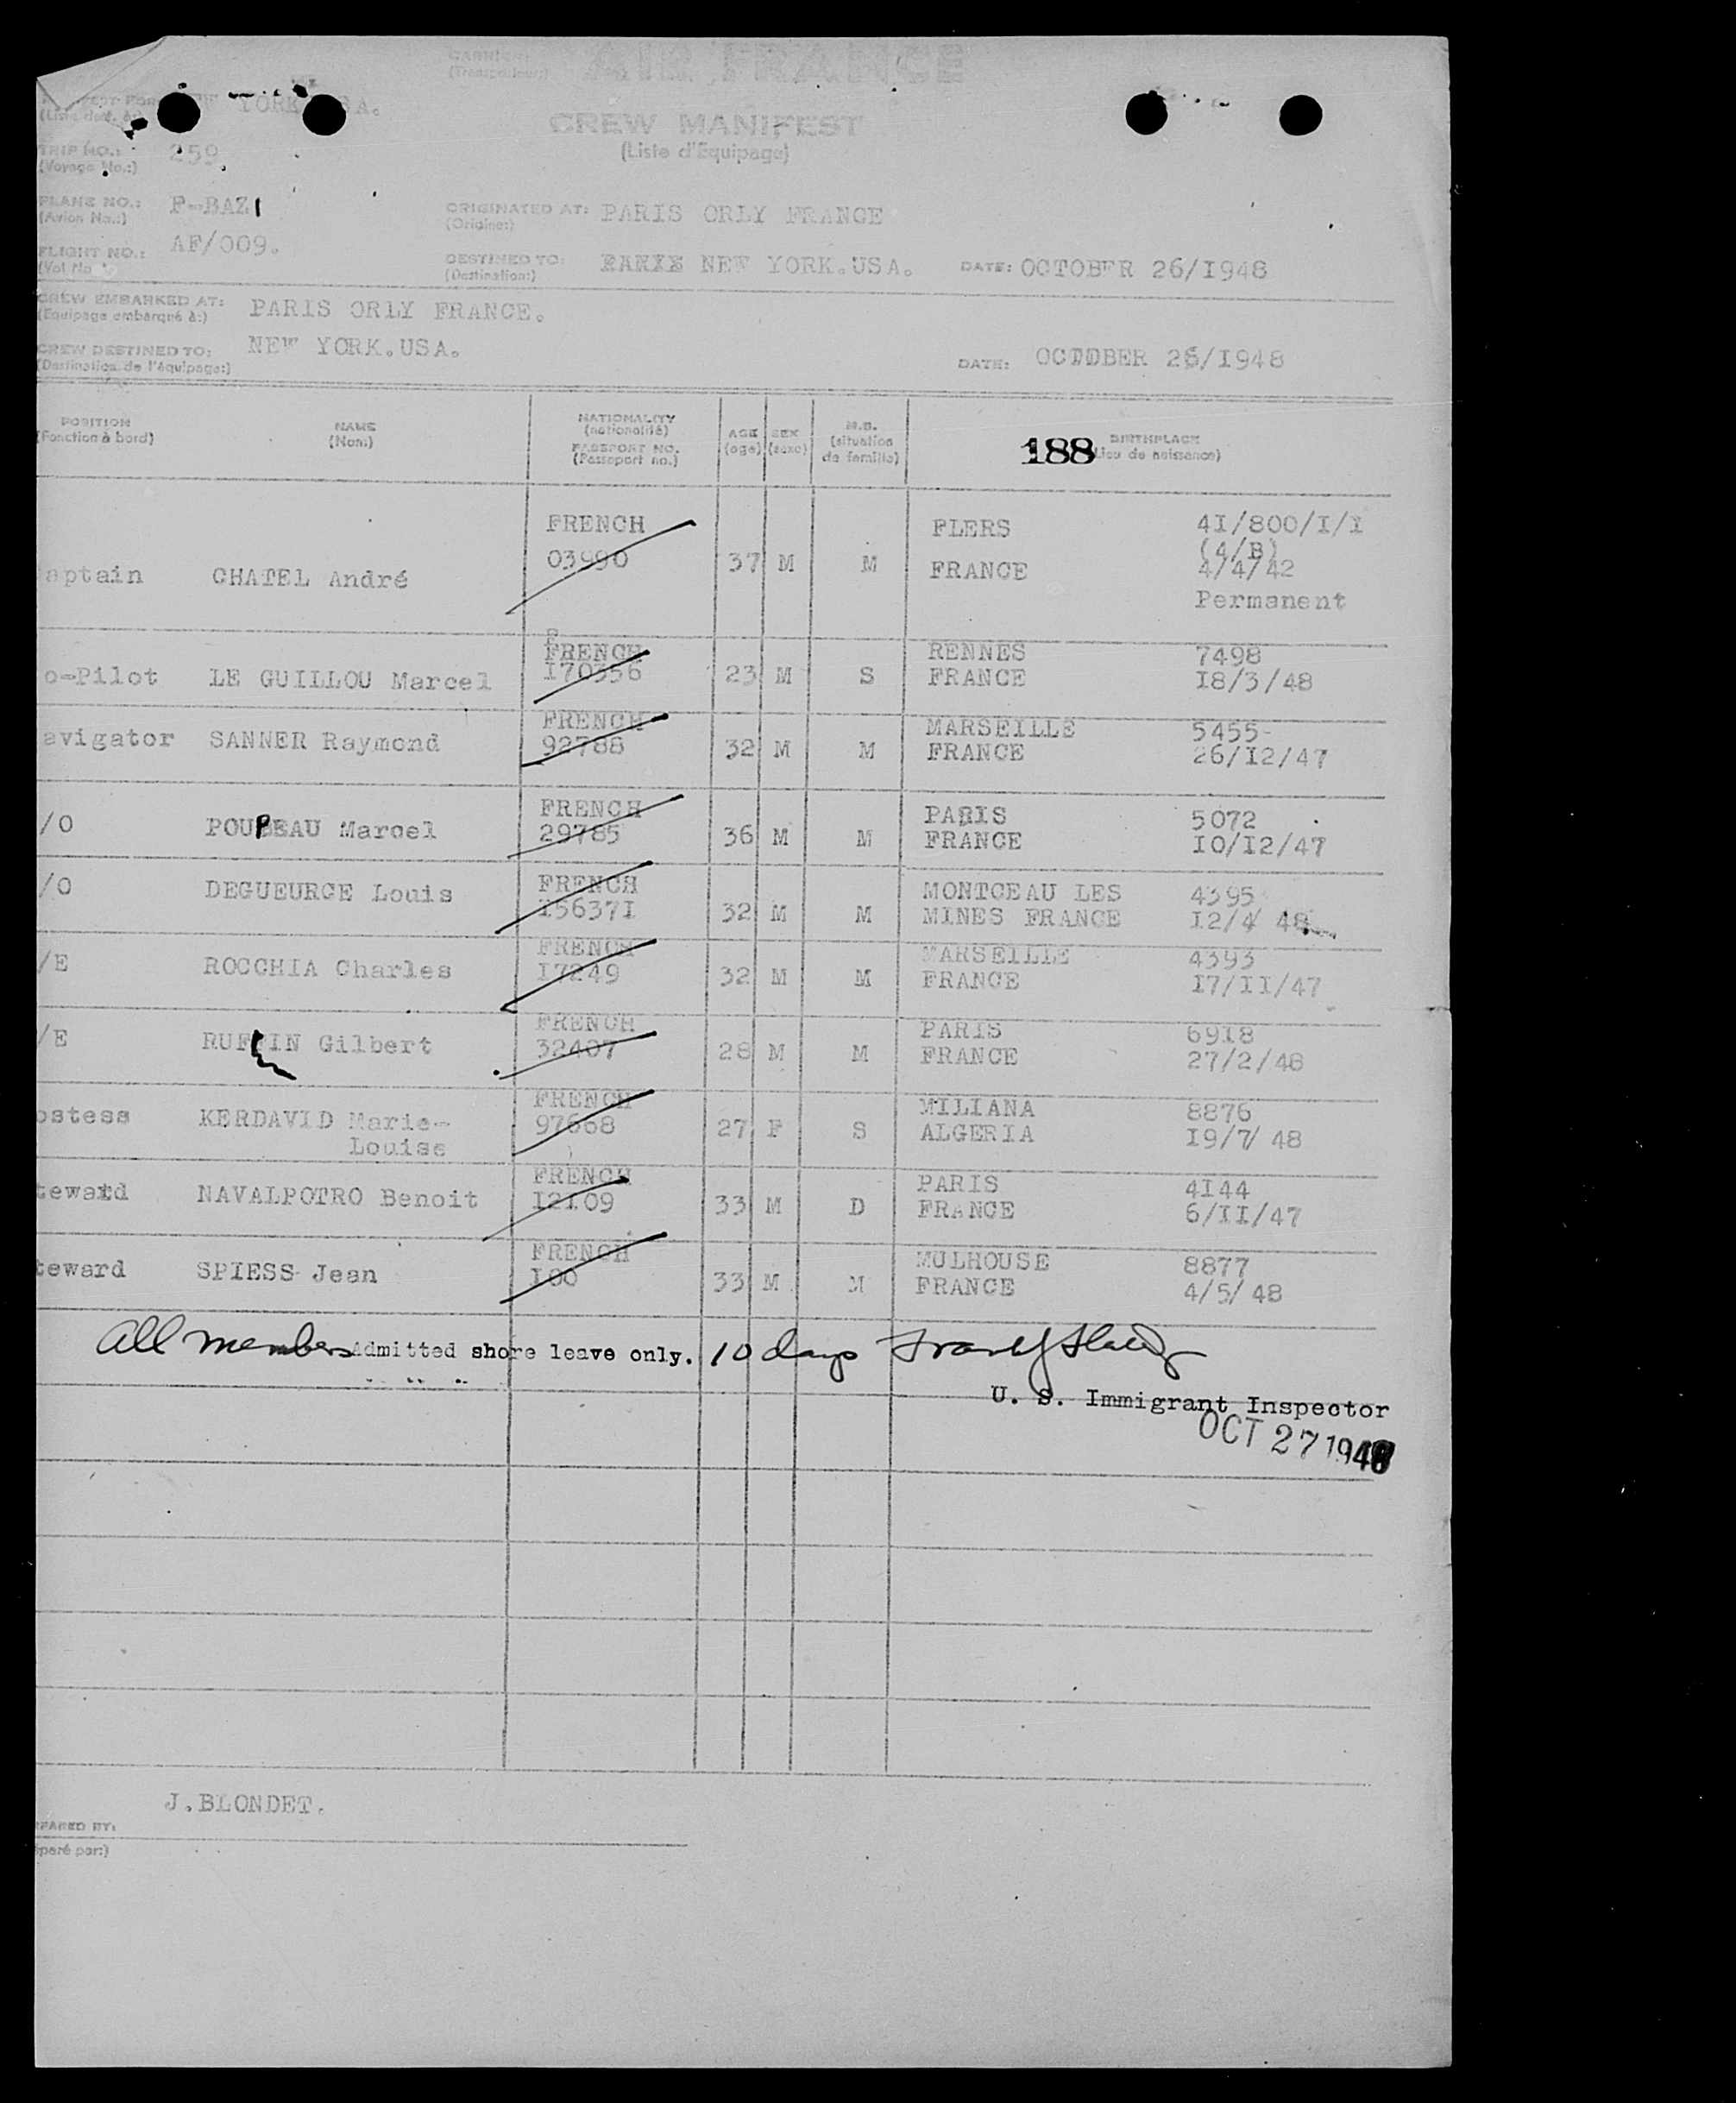 CARRIER: AIR FRANCE
(Transporteur:)
YORK
CREW MANIFEST
(Liste d'Équipage)
TRIP NO.: 259
(Voyage No.:)
PLANE NO.: F-BAZI
(Avion No.:)
ORIGINATED AT: PARIS ORLY FRANCE
(Origine:)
FLIGHT NO.: AF/009.
(Vol No
DESTINED TO: NEW YORK.USA. DATE: OCTOBER 26/I948
(Destination:)
CREW EMBARKED AT: PARIS ORLY FRANCE.
(Equipage embarqué à:)
CREW DESTINED TO: NEW YORK.USA. DATE: OCTDDBER 26/I948
(Destination de l'équipage:)
POSITION NAME NATIONALITY AGE SEX M.S. BIRTHPLACE
(Fonction à bord) (Nom:) (nationalité) (age) (sexe) (situation de famille) 188 Lieu de naissance)
PASSPORT NO.
(Passeport no.)
FRENCH FLERS 4I/800/I/I
(4/B)
aptain CHATEL André 03990 37 M M FRANCE 4/4/42
Permanent
FRENCH RENNES 7498
o-Pilot LE GUILLOU Marcel I70356 23 M S FRANCE I8/3/48
FRENCH MARSEILLE 5455-
avigator SANNER Raymond 92788 32 M M FRANCE 26/I2/47
FRENCH PARIS 5072
/O POUPEAU Marcel 29785 36 M M FRANCE IO/I2/47
/O DEGUEURCE Louis FRENCH MONTCEAU LES 4395
I5637I 32 M M MINES FRANCE I2/4/ 48
FRENCH MARSEILLE 4393
/E ROCCHIA Charles I7249 32 M M FRANCE I7/II/47
FRENCH PARIS 6918
/E RUFFIN Gilbert 32407 28 M M FRANCE 27/2/48
FRENCH MILIANA 8876
ostess KERDAVID Marie- 97668 27 F S ALGERIA I9/7/ 48
Louise
FRENCH PARIS 4I44
teward NAVALPOTRO Benoit I2I09 33 M D FRANCE 6/II/47
FRENCH MULHOUSE 8877
teward SPIESS Jean I00 33 M M FRANCE 4/5/ 48
All members Admitted shore leave only. 10 days
U. S. Immigrant Inspector
OCT 27 1948
J.BLONDET.
EPARED BY:
éparé par:)